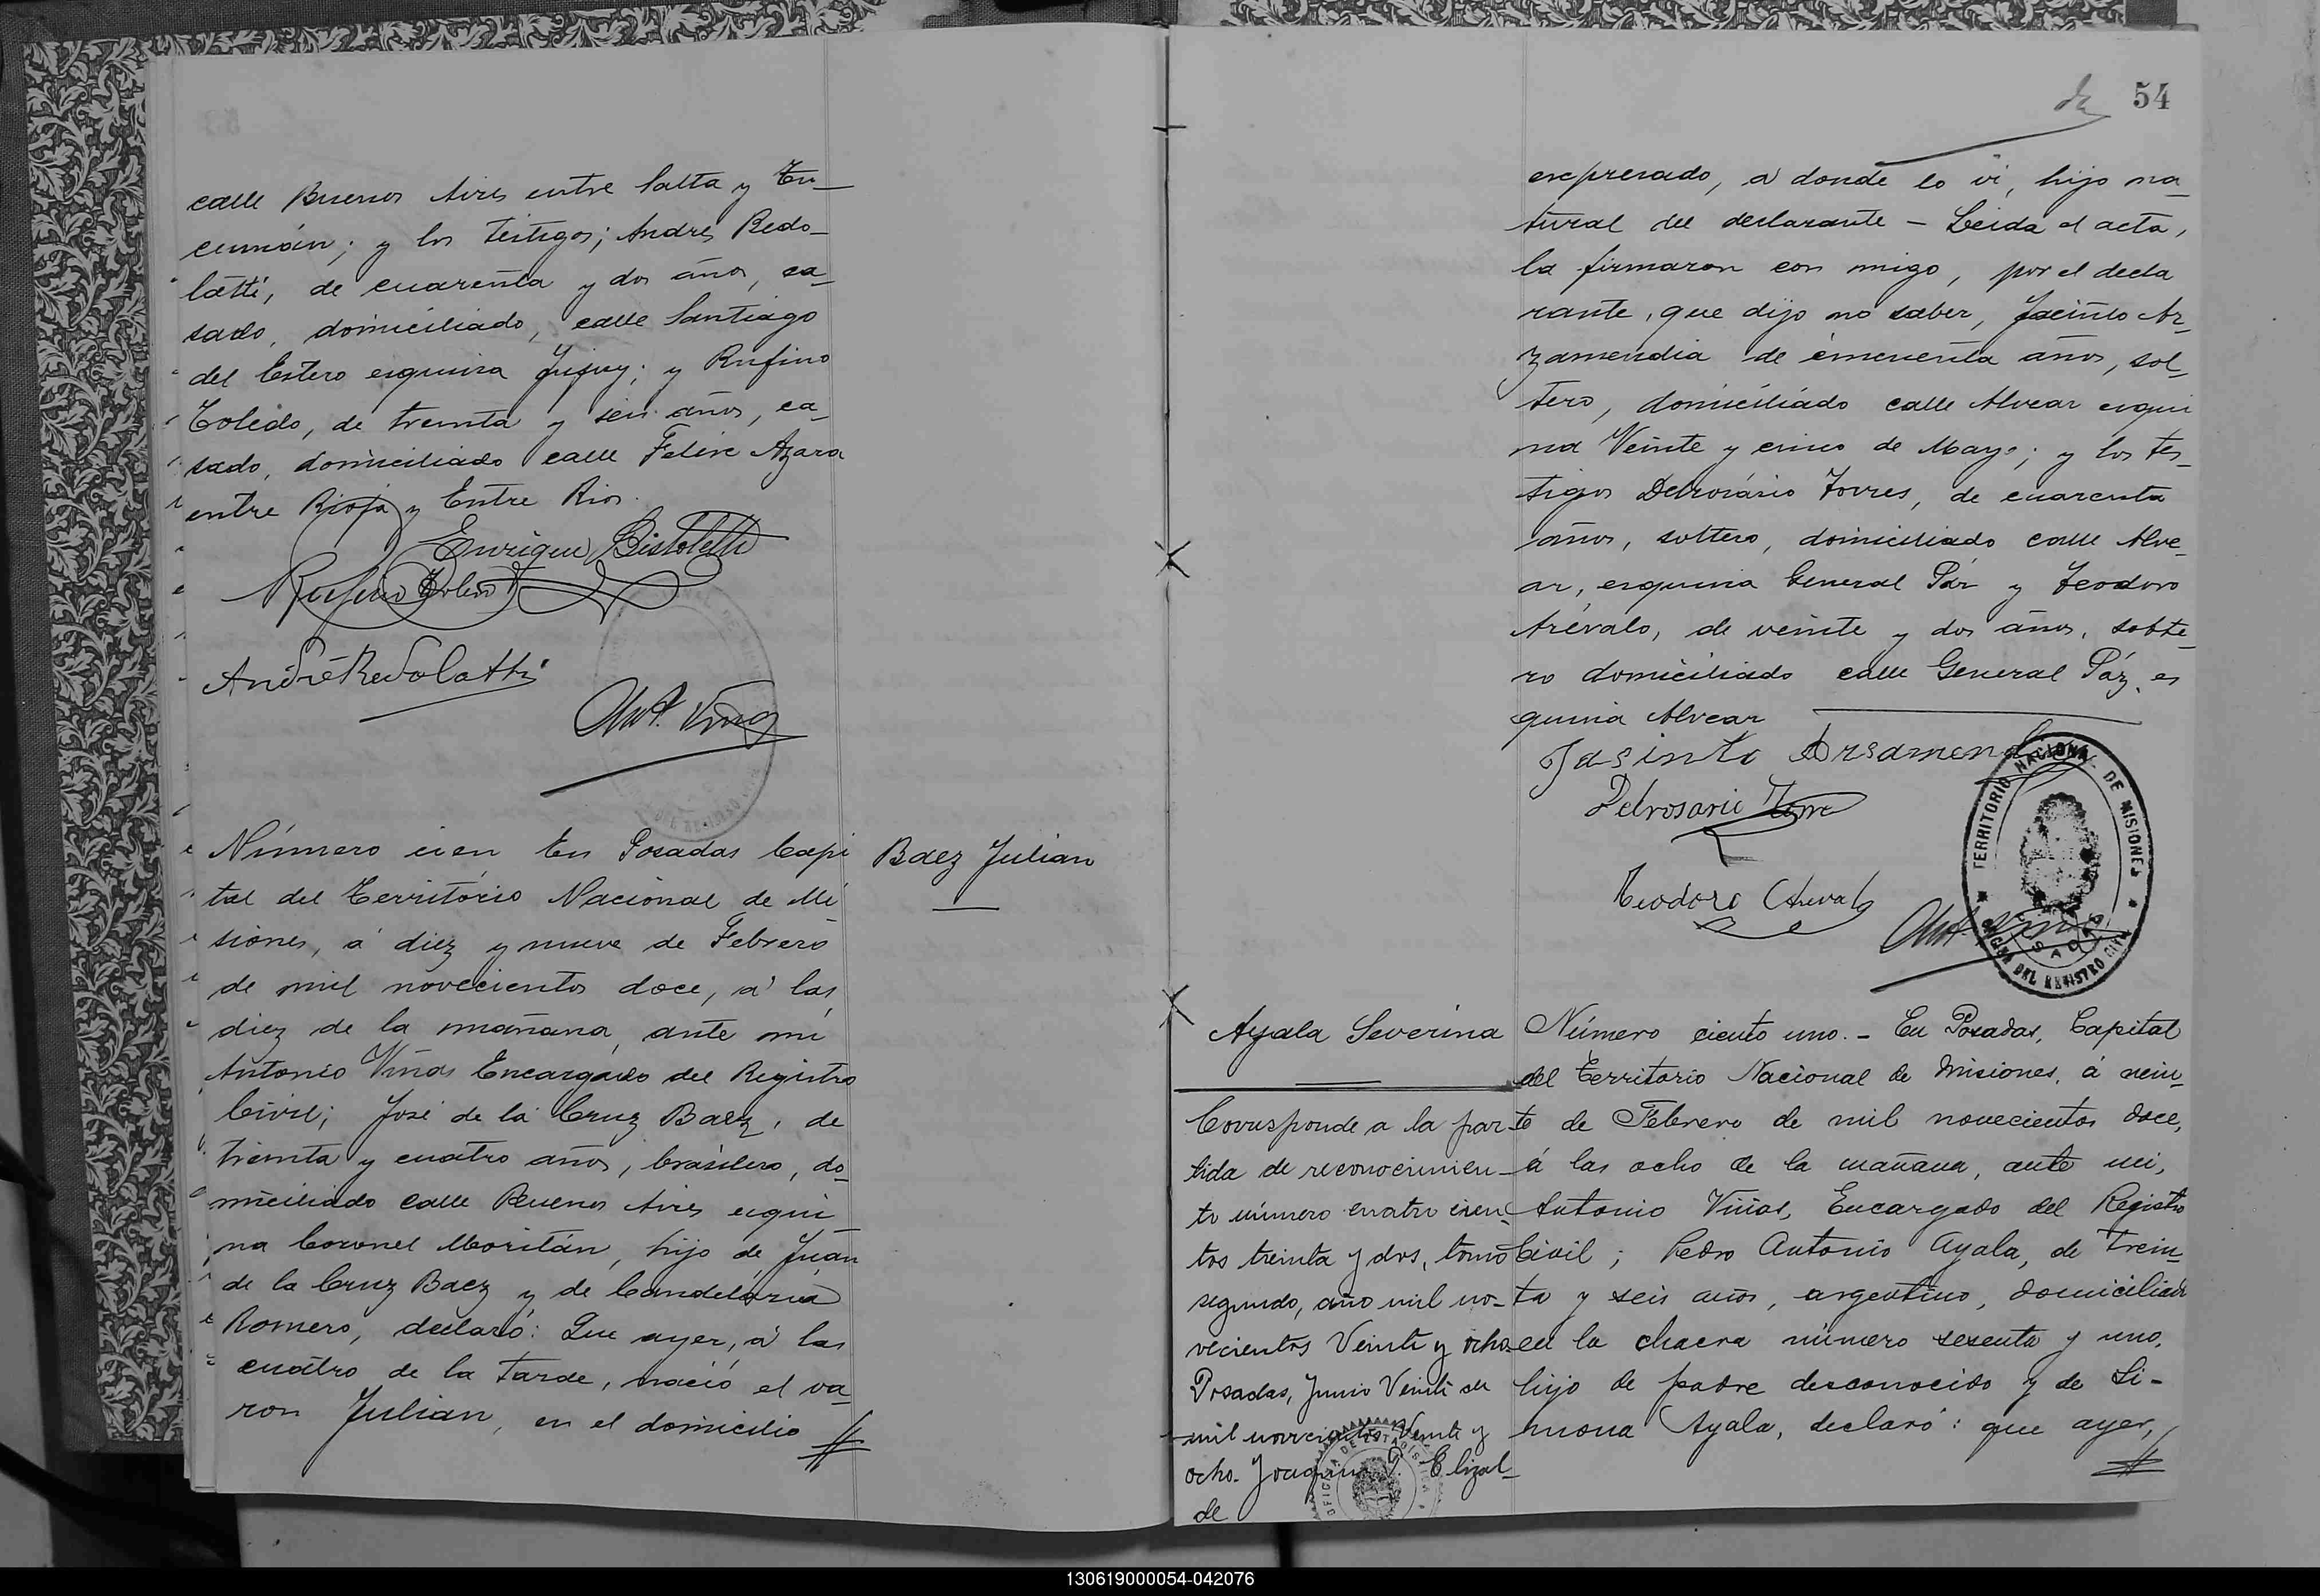 calle Buenos Aires entre Salta y Tu_
cumán; y los testigos; Andrés Redo_
latti, de cuarenta y dos años, ca_
sado, domiciliado, calle Santiago
del Estero esquina Jujuy; y Rufino
Toledo, de treinta y seis años, ca_
sado, domiciliado calle Felix Azara
entre Rioja y Entre Rios.
Enrique Bistoletti
Rufino Toledo
André Redolatti
Ant. Viñas
Número cien En Posadas Capi
tal del Territorio Nacional de Mi_
siones, á diez y nueve de Febrero
de mil novecientos doce, á las
diez de la mañana, ante mi
Antonio Viñas Encargado del Registro
Civil; José de la Cruz Baez, de
treinta y cuatro años, brasilero, do_
miciliado calle Buenos Aires esqui_
na Coronel Moritán, hijo de Juan
de la Cruz Baez y de Candelaria
Romero, declaró: Que ayer, á las
cuatro de la tarde, nació el va_
ron Julian, en el domicilio
Baez Julian
54
expresado, á donde lo ví, hijo na_
tural del declarante – Leida el acta,
la firmaron con migo, por el decla
rante, que dijo no saber, Jacinto Ar_
zamendia de cincuenta años, sol_
tero, domiciliado calle Alvear esqui
na Veinte y cinco de Mayo; y los tes_
tigos Delrosário Torres, de cuarenta
años, soltero, domiciliado calle Alve_
ar, esquina General Páz y Teodoro
Arévalo, de veinte y dos años, solte_
ro domiciliado calle General Páz, es
quina Alvear
Jasinto Arsamendia
Delrosario Torre
Teodoro Arevalo
Ant. Viñas
TERRITORIO NACIONAL DE MISIONES
OFICINA DEL REGISTRO CIVIL
POSADAS
Ayala Severina
Corresponde a la par
tida de reconocimien_
to número cuatrocien_
tos treinta y dos, tomo
segundo, año mil no_
vecientos Veinte y ocho
Posadas, Junio Veinte de
mil novecientos Veinte y
ocho. Joaquin P. Elizal_
de
Número ciento uno. – En Posadas, Capital
del Territorio Nacional de Misiones, á vein_
te de Febrero de mil novecientos doce,
á las ocho de la mañana, ante mi,
Antonio Viñas, Encargado del Registro
Civil; Pedro Antonio Ayala, de trein_
ta y seis años, argentino, domiciliado
en la chacra número sesenta y uno,
hijo de padre desconocido y de Si-
mona Ayala, declaró: que ayer,
130619000054-042076